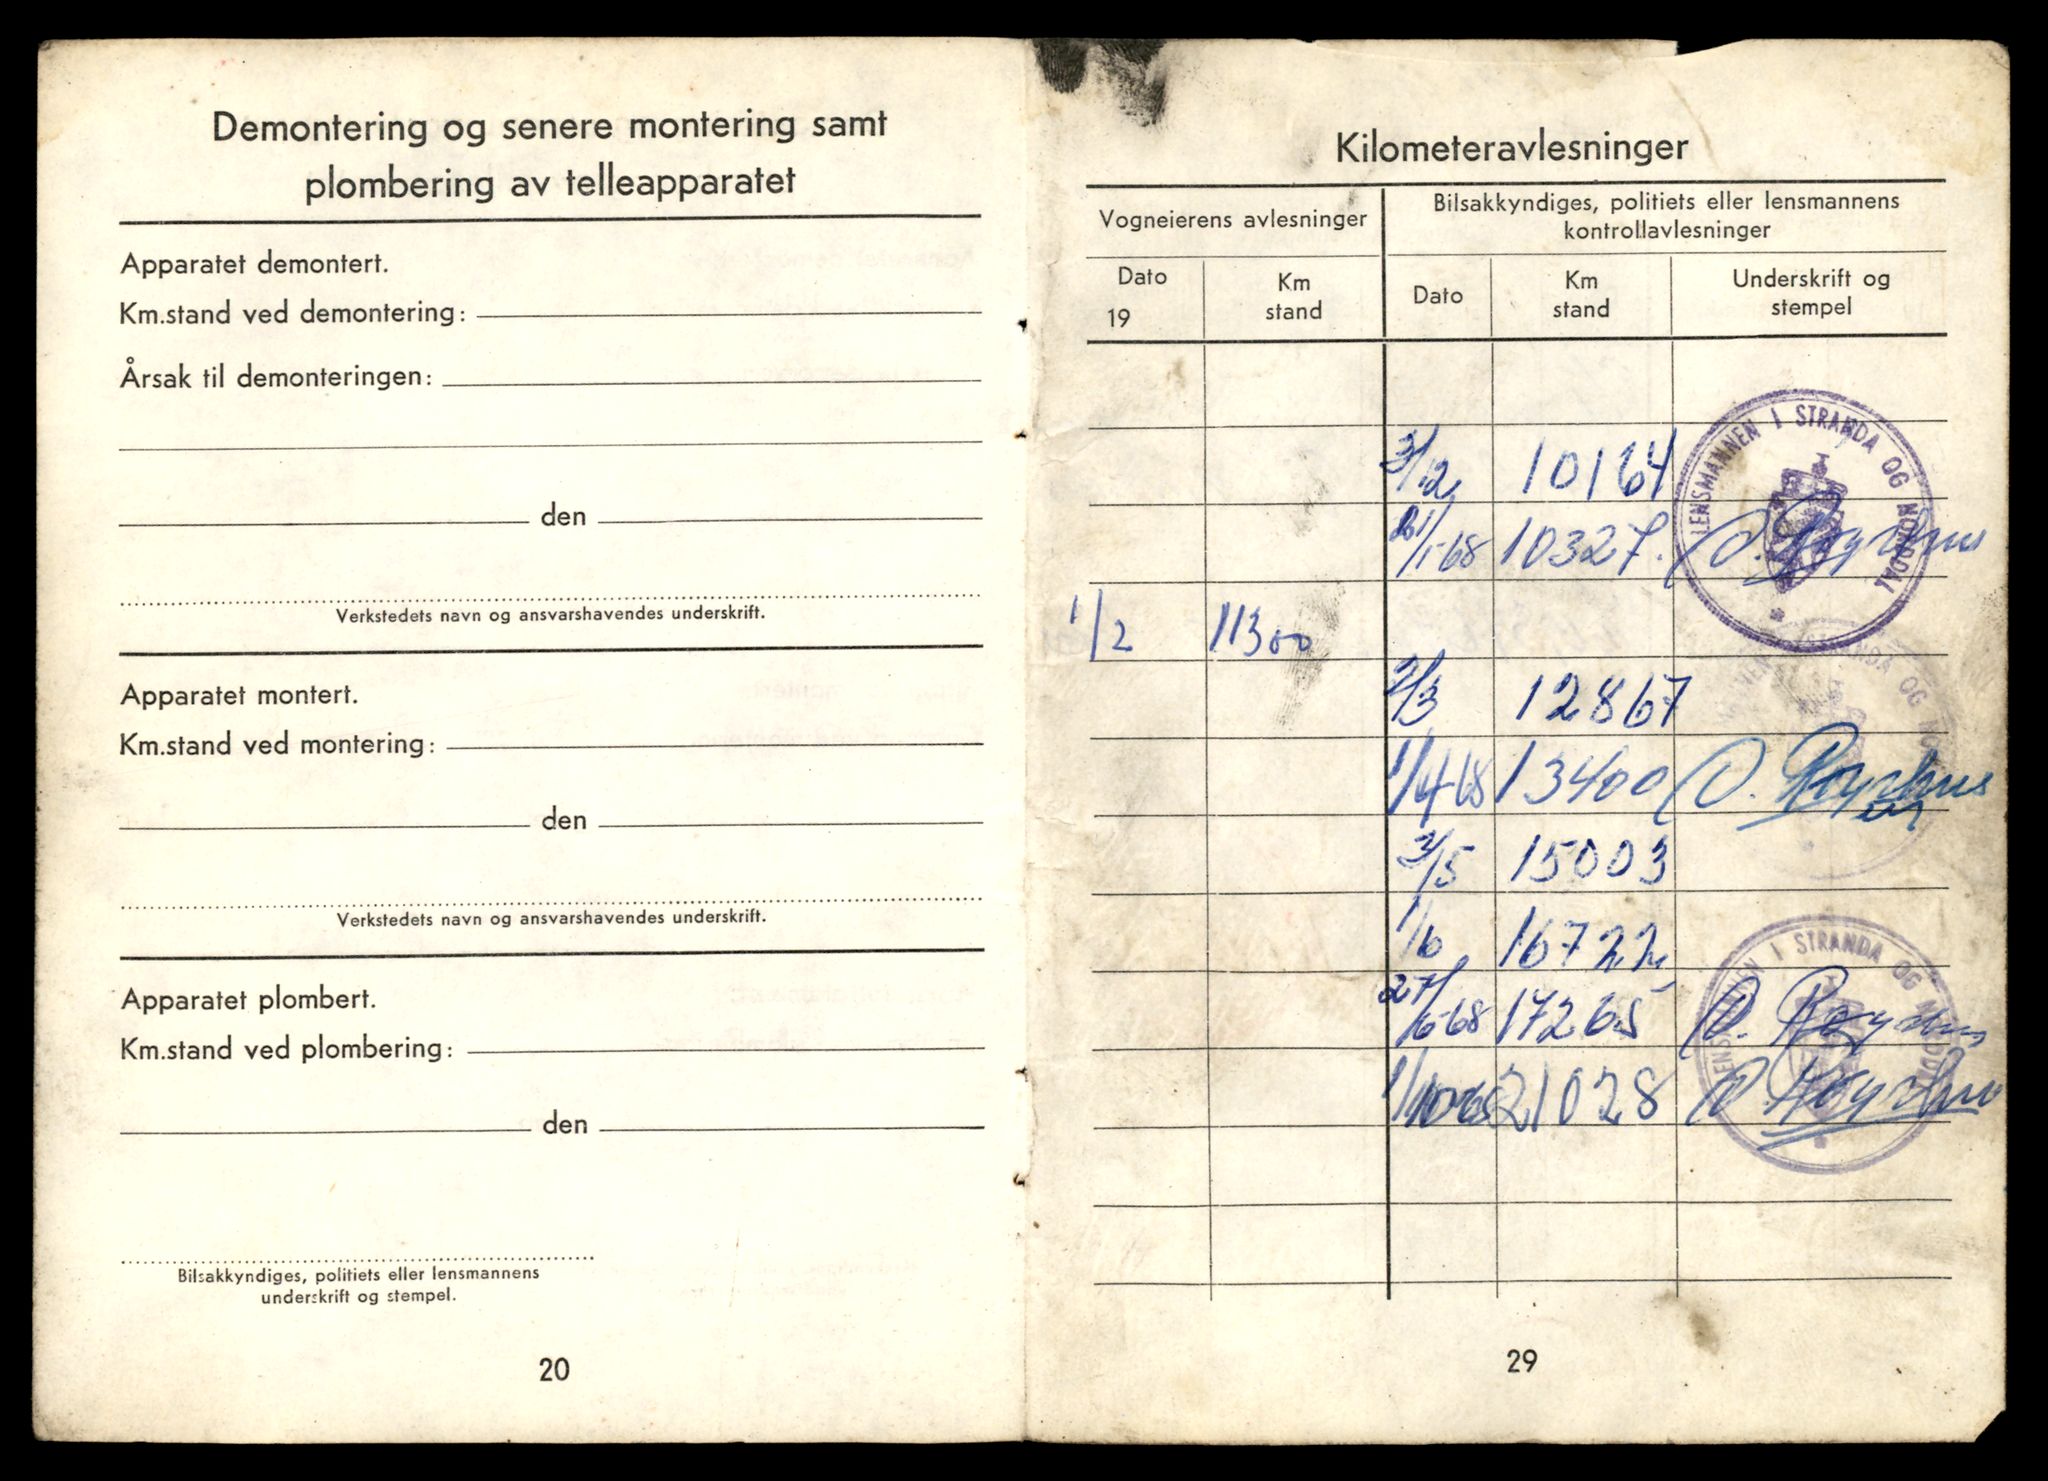 Demontering og senere montering samt
plombering av telleapparatet
Apparatet demontert.
Km.stand ved demontering:
Årsak til demonteringen:
den
Verkstedets navn og ansvarshavendes underskrift.
Apparatet montert.
Km.stand ved montering:
den
Verkstedets navn og ansvarshavendes underskrift.
Apparatet plombert.
Km.stand ved plombering:
den
Bilsakkyndiges, politiets eller lensmannens
underskrift og stempel.
20
Kilometeravlesninger
Vogneierens avlesninger
Bilsakkyndiges, politiets eller lensmannens
kontrollavlesninger
Dato
19
Km
stand
Dato
Km
stand
Underskrift og
stempel
LENSMANNEN I STRANDA OG NORDDAL
/12 10164
/1-68 10327.
1/2 1300
2/3 12867
1/4 68 13400
2/5 15003
1/6 16722
27/6-68 17265
LENSMANNEN I STRANDA OG NORDDAL
1/10-68 21028
29